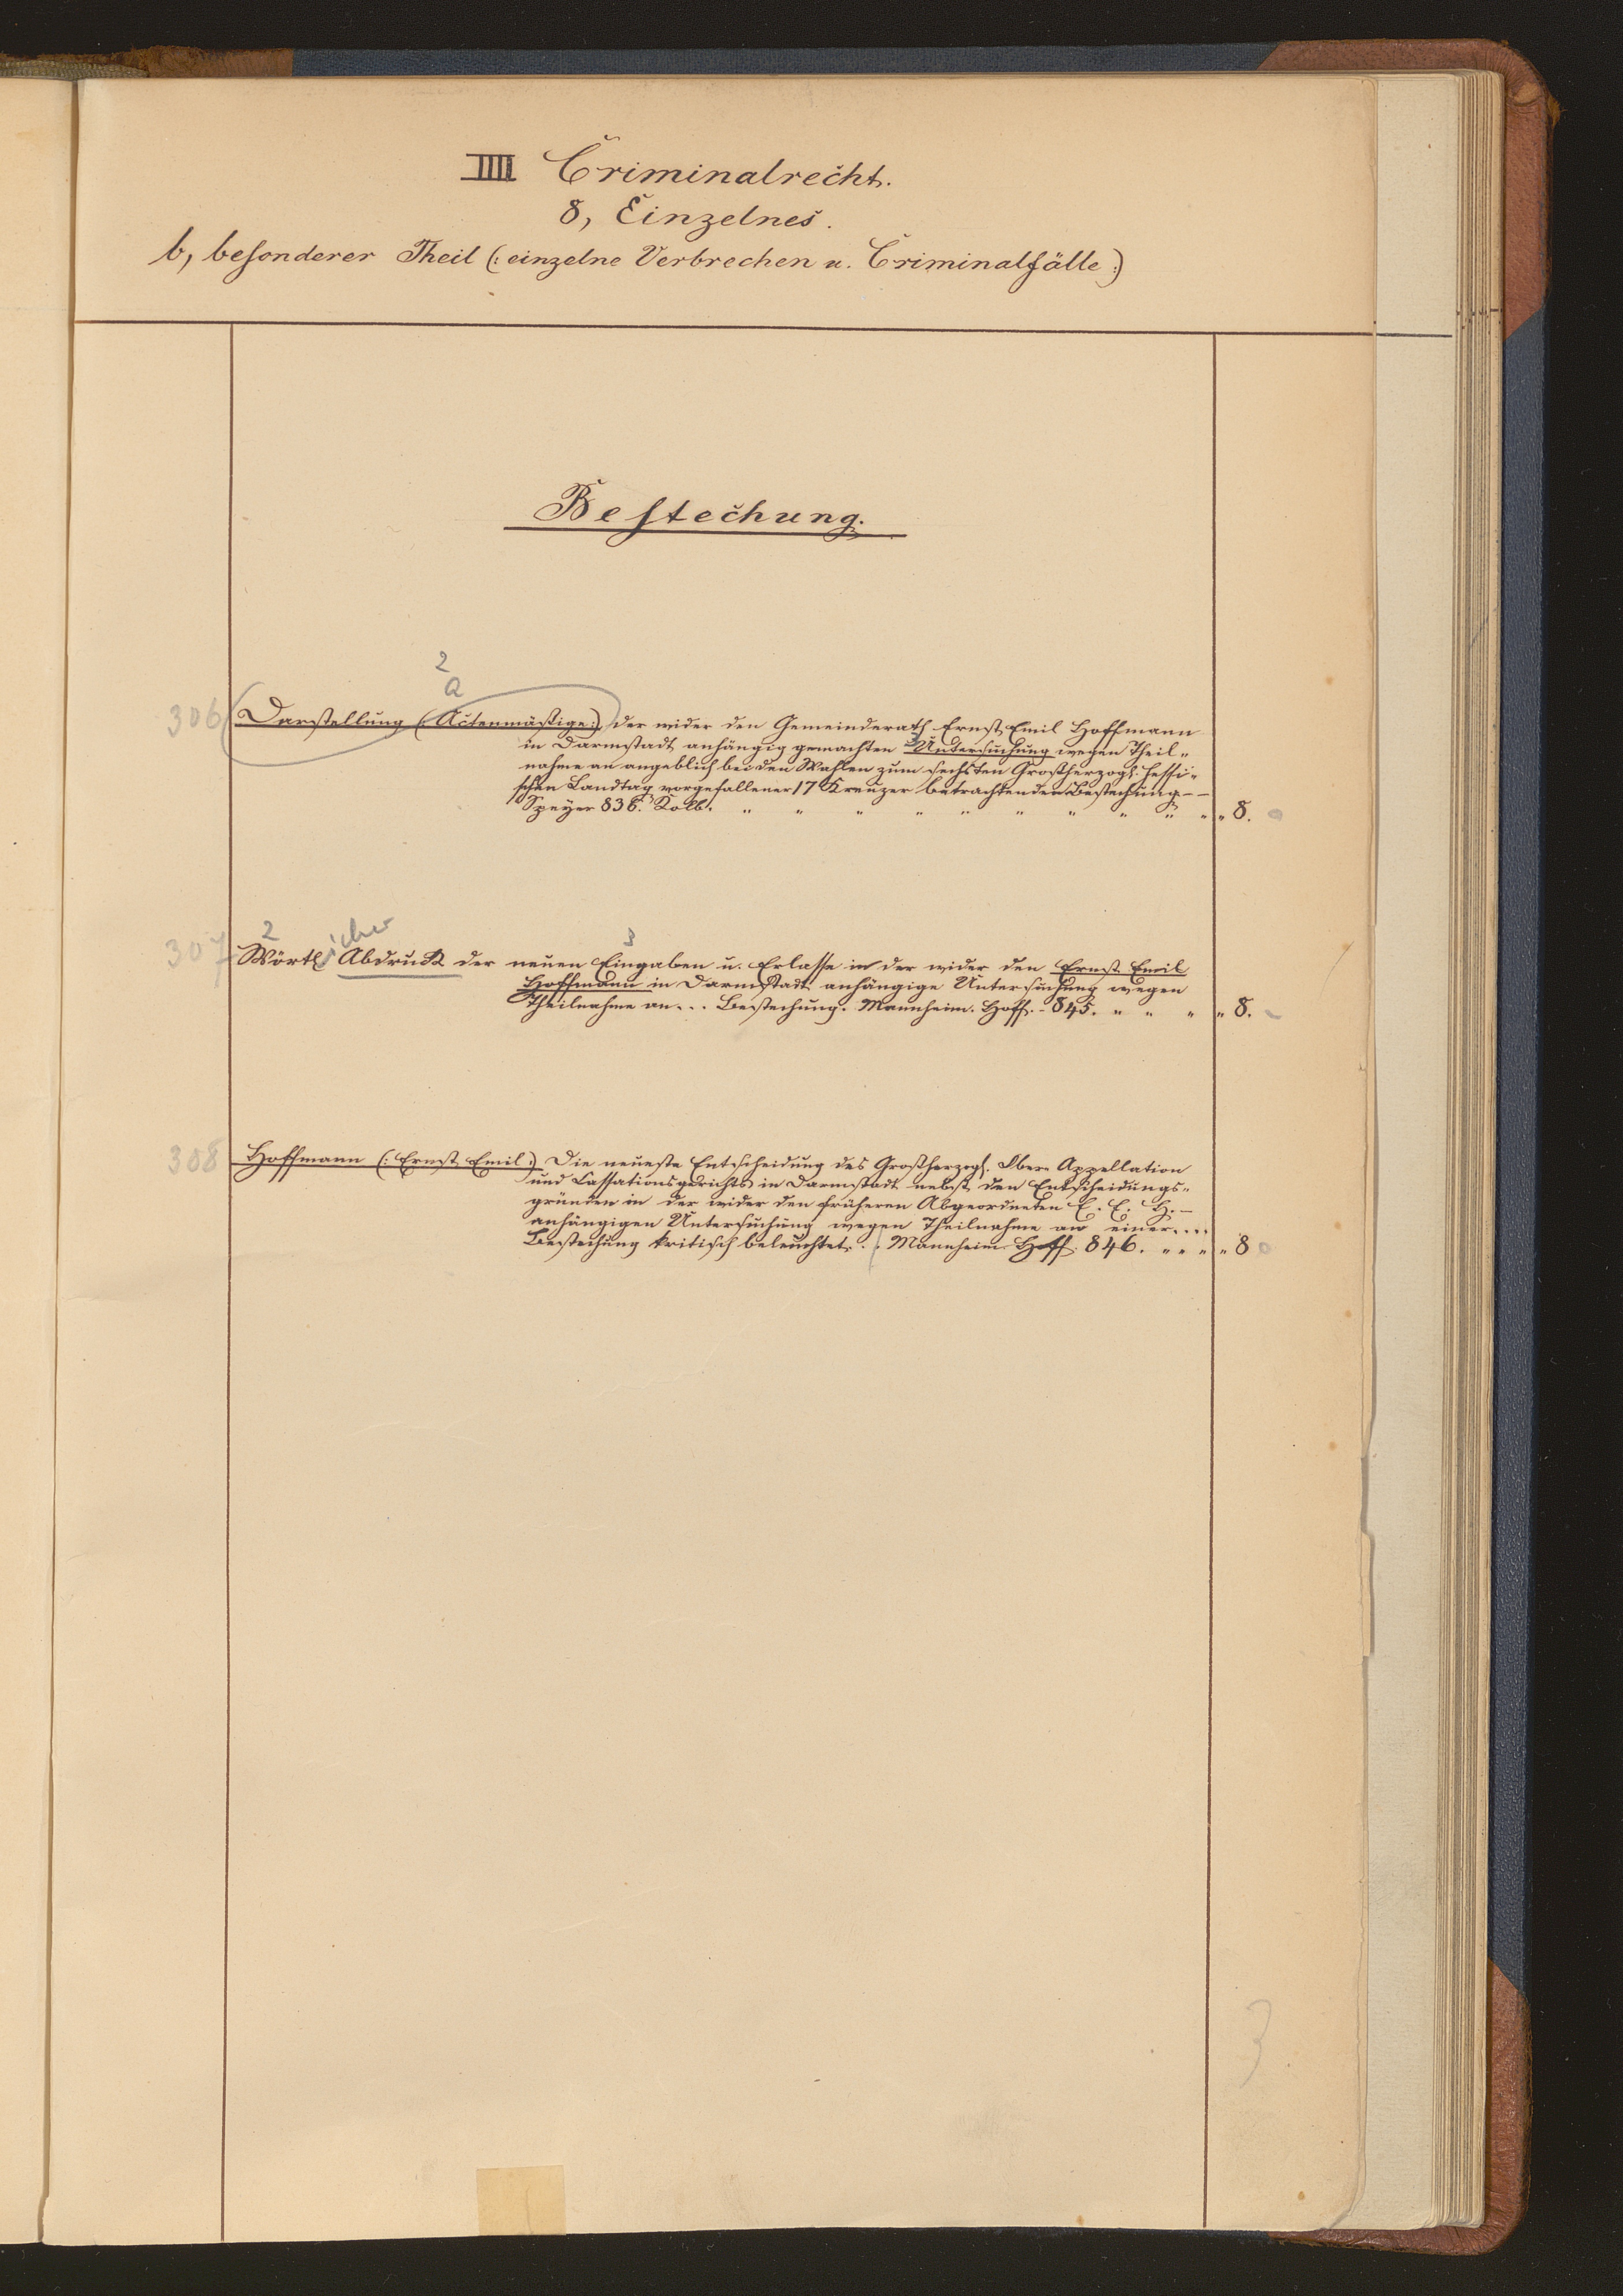 IIII Criminalrecht.
8, Einzelnes.
b, besonderer Theil (: einzelne Verbrechen u. Criminalfälle :)
Bestechung.
2
a
306 Darstellung (: Actenmäßige :) der wider den Gemeinderath Ernst Emil Hoffmann
in Darmstadt anhängig gemachten Untersuchung wegen Theil-
nahme an angeblich bei den Wahlen zum sechsten Großherzogl. Hessi-
schen Landtag vorgefallener 17 Kreuzer betrachtenden Bestechung - -
Speyer 836. Kolb. " " " " " " " " " " " 8.
2 3
307 Wörtlicher Abdruck der neuen Eingaben u. Erlasse in der wider den Ernst Emil
Hoffmann in Darmstadt anhängige Untersuchung wegen
Theilnahme an... Bestechung. Mannheim. Hoff. - 845. " " " " 8.
308 Hoffmann (: Ernst Emil :) Die neueste Entscheidung des Großherzogl. Ober Appellation
und Cassationsgerichts in Darmstadt nebst den Entscheidungs-
gründen in der wider den früheren Abgeordneten E. E. H. -
anhängigen Untersuchung wegen Theilnahme an einer....
Bestechung kritisch beleuchtet. . Mannheim Hoff. 846. " " " " 8
3